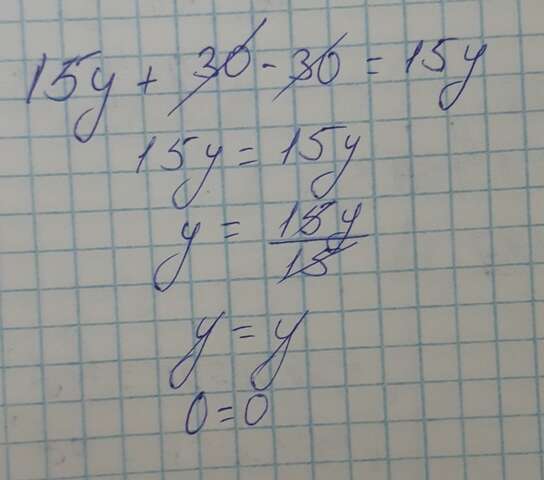 15y + 30 - 30 = 15y
15y = 15y
y = 15y/15
y = y
0 = 0